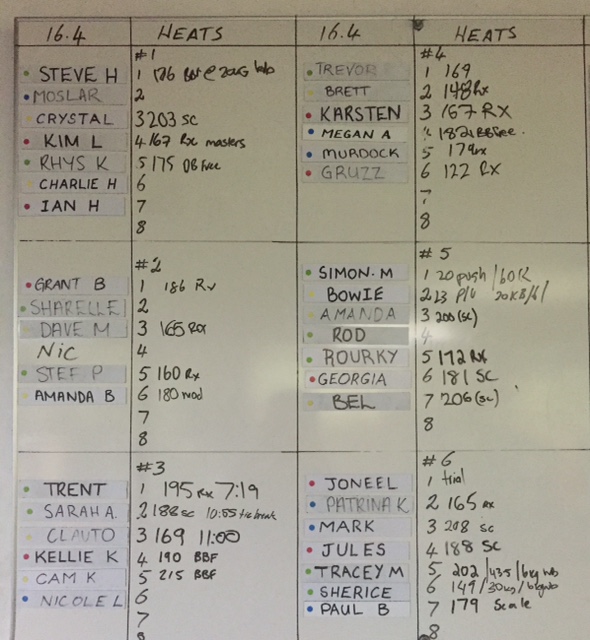 16.4 HEATS
#1
STEVE H 1 176
MOSLAR 2
CRYSTAL 3 203 SC
KIM L 4 167 Rx masters
RHYS K 5 175 DB free
CHARLIE H 6
IAN H 7
8
#2
GRANT B 1 186 Rx
SHARELLE 2
DAVE M 3 165 Rx
Nic 4
STEF P 5 160 Rx
AMANDA B 6 180 mod
7
8
#3
TRENT 1 195 Rx 7:19
SARAH A. 2 188 sc 10:55 tie break
CLAUTO 3 169 11:00
KELLIE K 4 190 BBF
CAM K 5 215 BBF
NICOLE L 6
7
8
16.4 HEATS
#4
TREVOR 1 169
BRETT 2 148 Rx
KARSTEN 3 167 RX
MEGAN A 4 182
MURDOCK 5 179 Rx
GRUZZ 6 122 RX
7
8
#5
SIMON. M 1 20 push /
BOWIE 2 23 P/U 20KB/6/
AMANDA 3 200 (sc)
ROD 4
ROURKY 5 172 RX
GEORGIA 6 181 SC
BEL 7 206 (sc)
8
#6
JONEEL 1 trial
PATRINA K 2 165 Rx
MARK 3 208 sc
JULES 4 188 SC
TRACEY M 5 202 / 43.5 / 6kg wb
SHERICE 6 149 / 30kg / 6kg wb
PAUL B 7 179 Scale
8